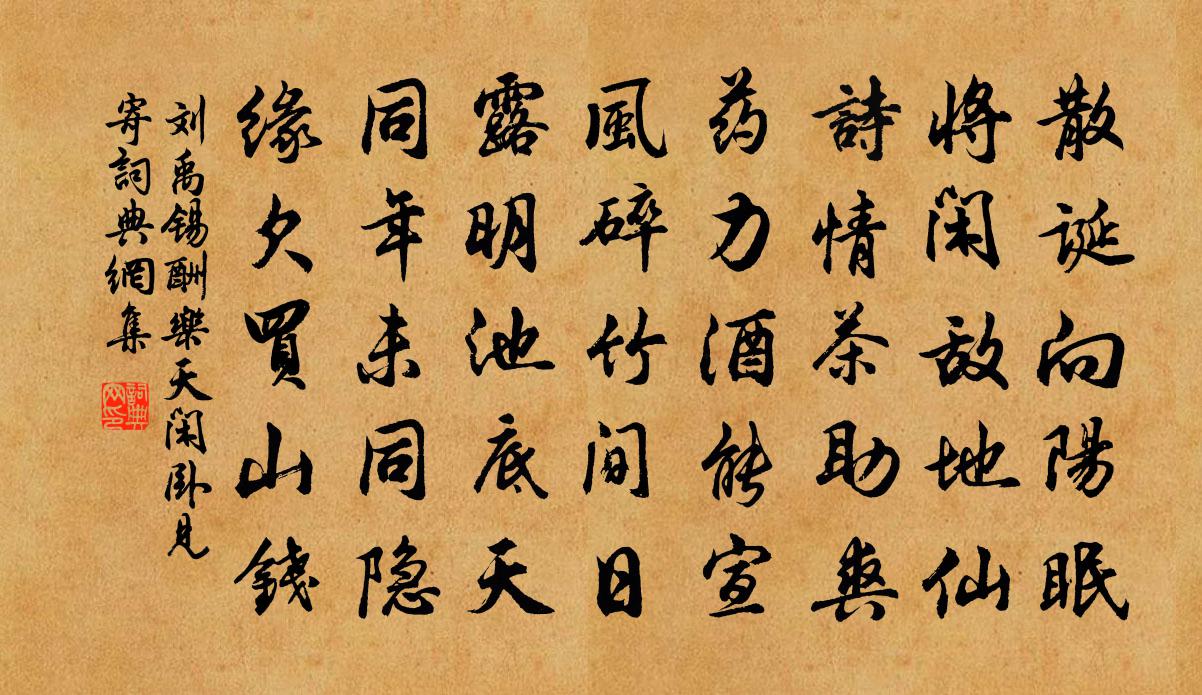 散誕向陽眠
將閑敵地仙
詩情茶助爽
药力酒能宣
風碎竹間日
露明池底天
同年未同隐
緣欠買山錢
刘禹錫酬樂天閑卧見
寄詞典網集
詞典网印